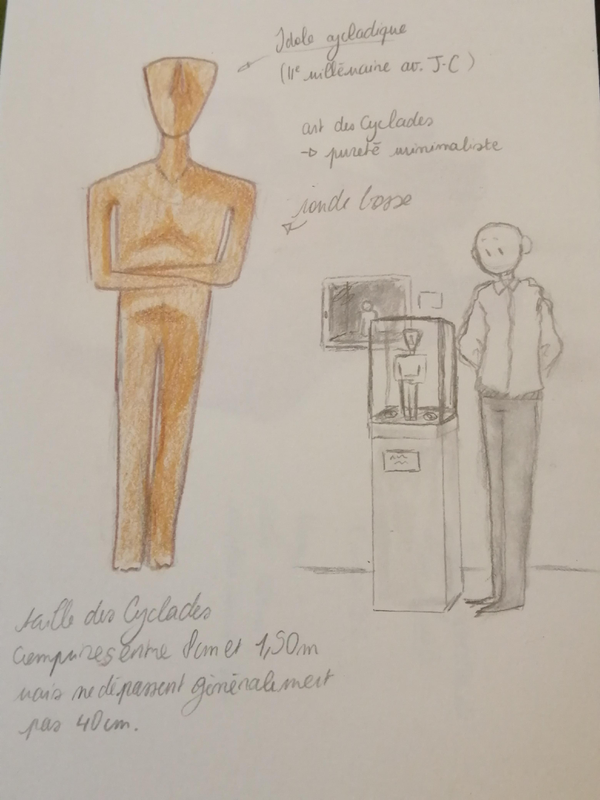 Idole cycladique
(IIe millénaire av. J-C)
art des Cyclades
→ pureté minimaliste
ronde bosse
taille des Cyclades
comprises entre 8cm et 1,50m
mais ne dépassent généralement
pas 40cm.